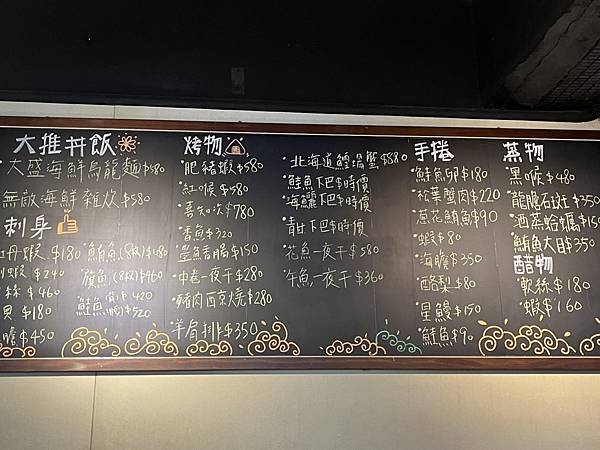 大推丼飯
大盛海鮮烏龍麵$580
無敵海鮮雜炊$580
刺身
牡丹蝦$180
蝦$240
$460
貝$180
膽$450
鮪魚(8枚)
旗魚(8枚)$460
鮭魚 $420
$520
烤物
肥豬蝦$580
紅喉$580
喜知次$780
香魚$320
墨魚香腸$150
中卷一夜干$280
豬肉西京燒$280
羊肩排$350
北海道鱈場蟹$880
鮭魚下巴$時價
海鱺下巴$時價
青甘下巴$時價
花魚一夜干$580
午魚一夜干$360
手捲
鮭魚卵$180
松葉蟹肉$220
蔥花鮪魚$90
蝦$80
海膽$350
醋梨$80
星鰻$150
鮭魚$90
蒸物
黑喉$480
龍膽石斑$350
酒蒸蛤蠣$150
鮪魚大目$350
醋物
軟絲$180
蝦$160